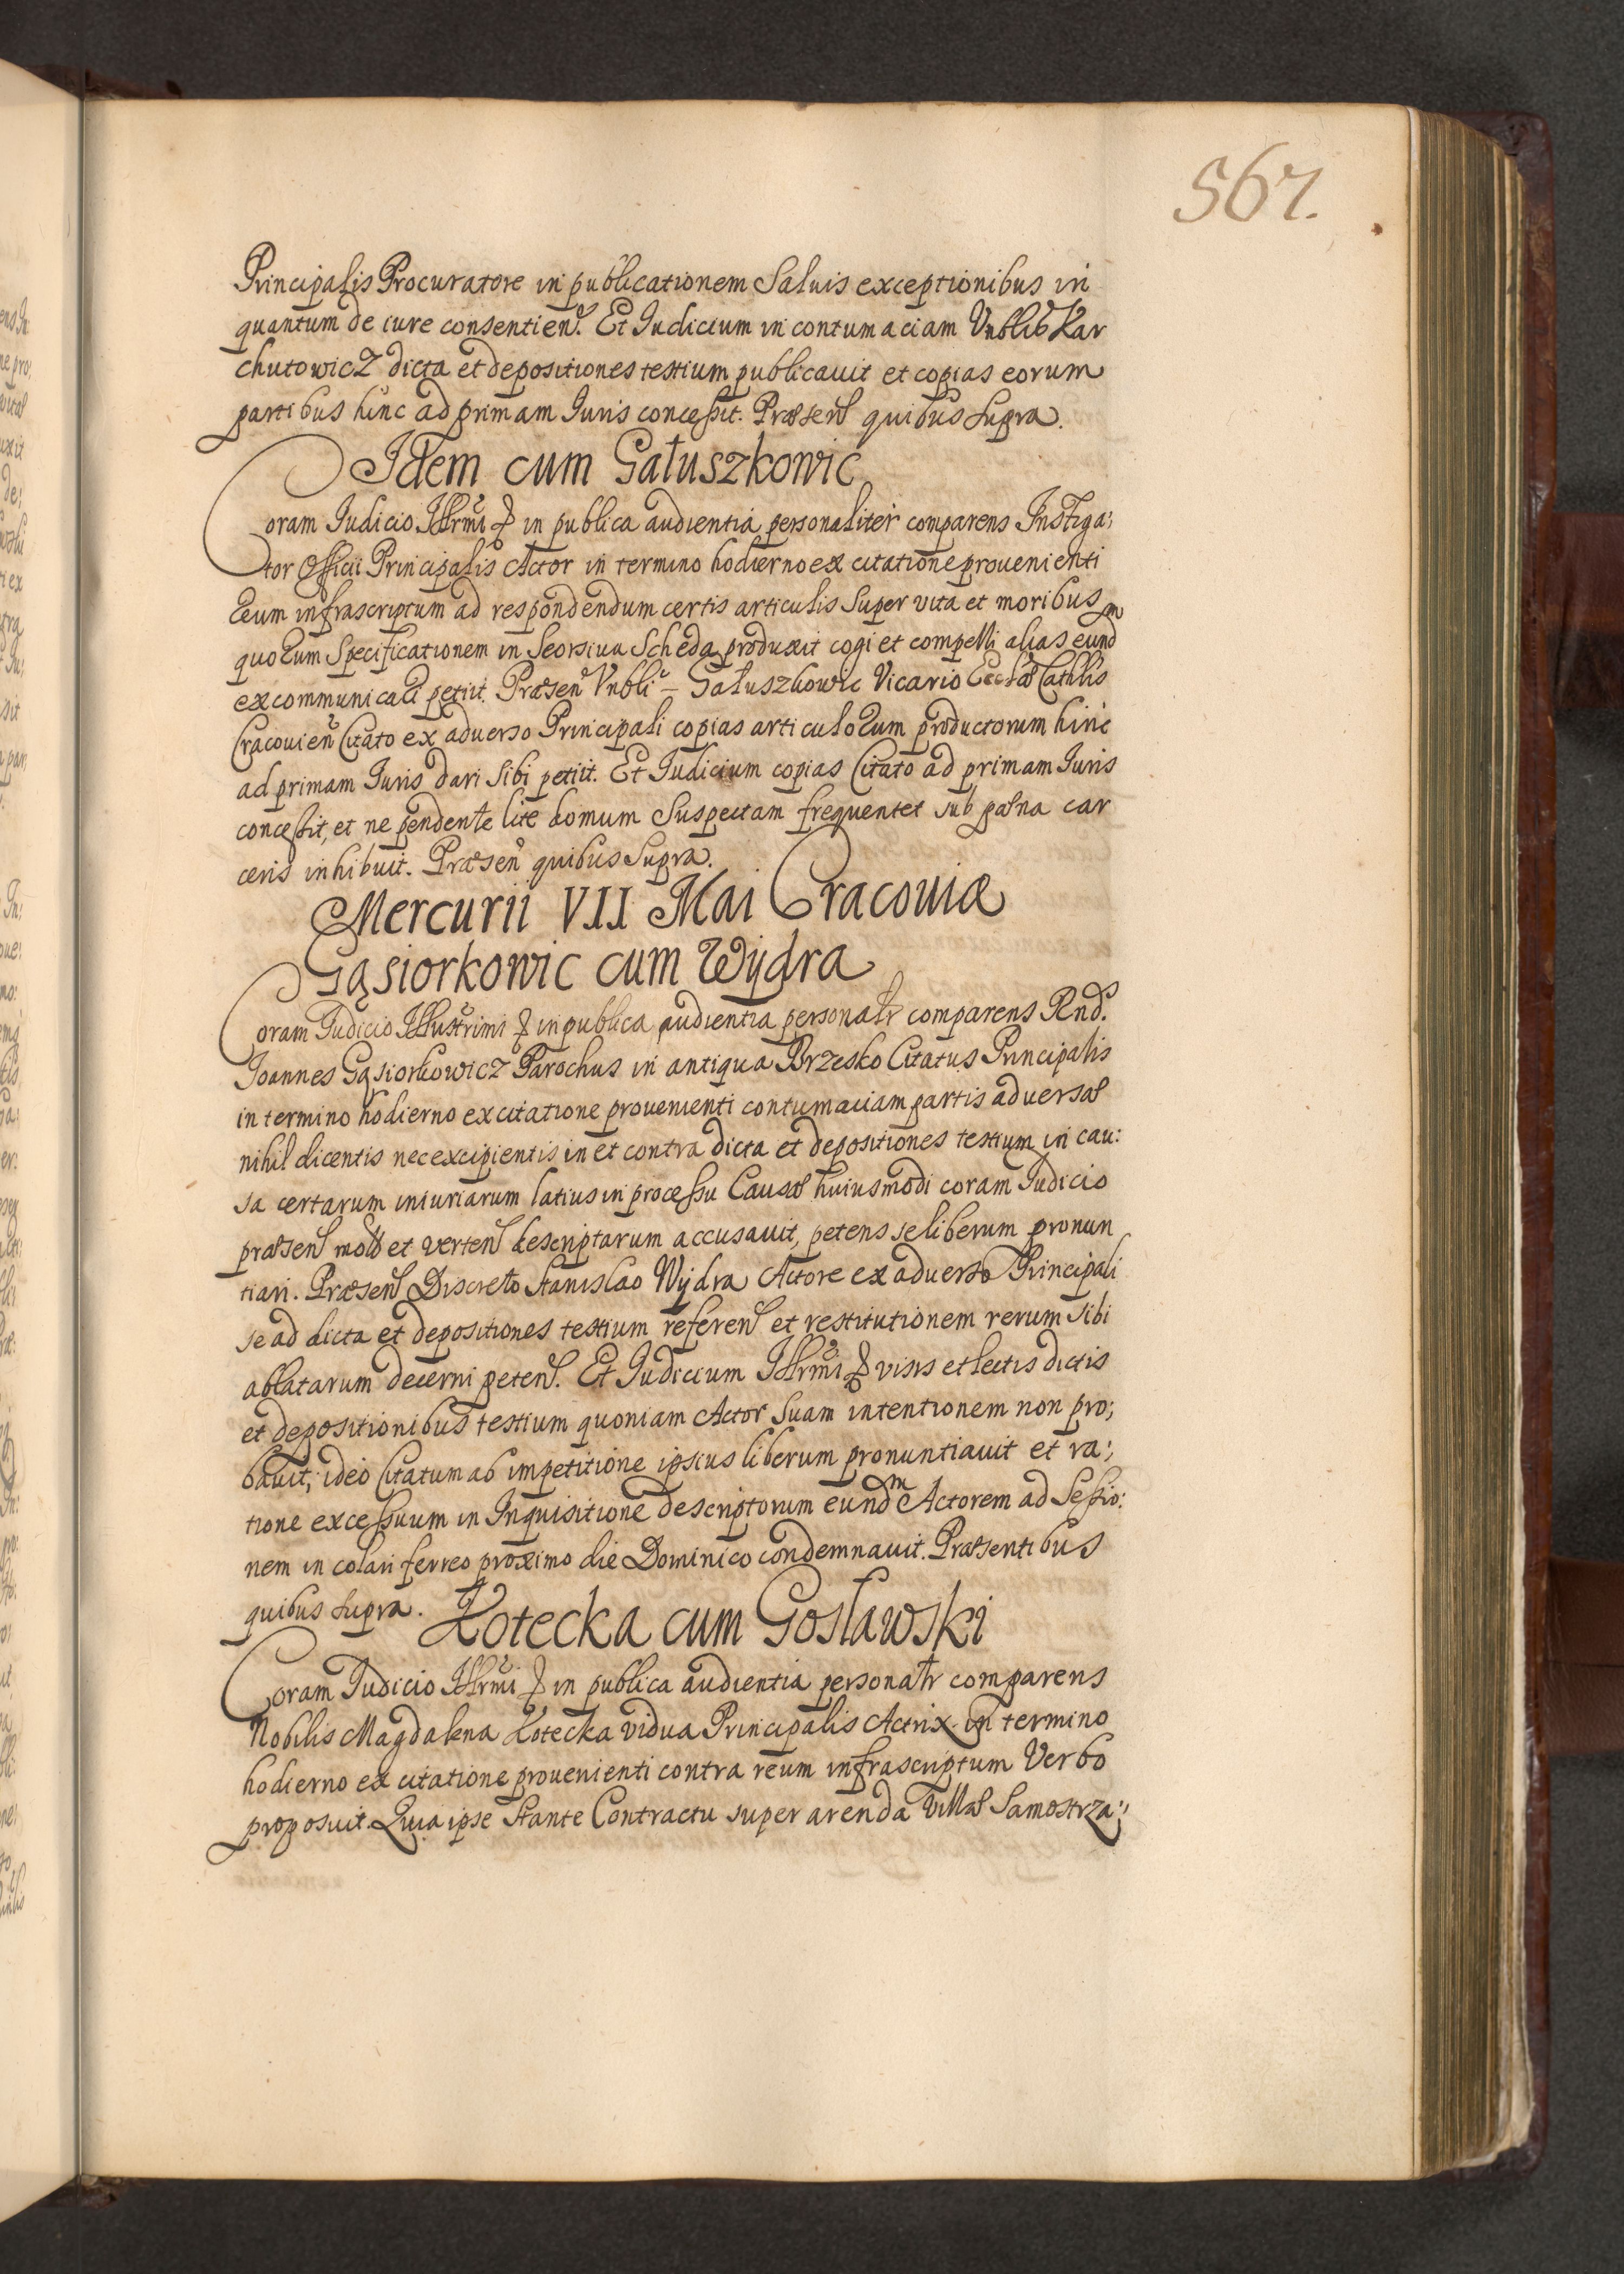 567.
Principalis Procuratore in publicationem Saluis exceptionibus in
quantum de iure consentien. Et Iudicium in contumaciam Vnblis Kar
chutowicz dicta et depositiones testium publicauit et copias eorum
partibus hinc ad primam Iuris concessit. Præsen quibus Supra.
Idem cum Gałuszkowic
Coram Iudicio Illrmi & in publica audientia personaliter comparens Instiga:
tor Officii Principalis Actor in termino hodierno ex citatione prouenienti
Reum infrascriptum ad respondendum certis articulis Super vita et moribus
quorum Specificationem in Seorsiua Scheda produxit cogi et compelli alias eundm
excommunicari petiit. Præsen Vnbli – Gałuszkowic Vicario Ecclæ Cathlis
Cracouien Citato ex aduerso Principali copias articulorum productorum hinc
ad primam Iuris dari Sibi petiit. Et Iudicium copias Citato ad primam Iuris
concessit, et ne pendente lite domum Suspectam frequentet sub pœna car
ceris inhibuit. Præsen quibus Supra.
Mercurii VII Mai Cracouiæ
Gąsiorkowic cum Wydra
Coram Iudicio Illustrimi & in publica audientia personalr comparens Rnd.
Joannes Gąsiorkowicz Parochus in antiqua Brzesko Citatus Principalis
in termino hodierno ex citatione prouenienti contumaciam partis aduersæ
nihil dicentis nec excipientis in et contra dicta et depositiones testium in cau:
sa certarum iniuriarum latius in processu Causæ huiusmodi coram Iudicio
præsen mota et verten descriptarum accusauit, petens se liberum pronun
tiari. Præsen Discreto Stanislao Wydra Actore ex aduerso Principali
se ad dicta et depositiones testium referen et restitutionem rerum sibi
ablatarum decerni peten. Et Iudicium Illrmi & visis et lectis dictis
et depositionibus testium quoniam Actor Suam intentionem non pro;
bauit; ideo Citatum ab impetitione ipsius liberum pronuntiauit et ra:
tione excessuum in Inquisitione descriptorum eundm Actorem ad Sessio:
nem in colari ferreo proximo die Dominico condemnauit. Præsentibus
quibus Supra.
Łotecka cum Gosławski
Coram Iudicio Illrmi & in publica audientia personalr comparens
Nobilis Magdalena Łotecka vidua Principalis Actrix in termino
hodierno ex citatione prouenienti contra reum infrascriptum Verbo
proposuit. Quia ipse Stante Contractu super arenda Villæ Samostrza: